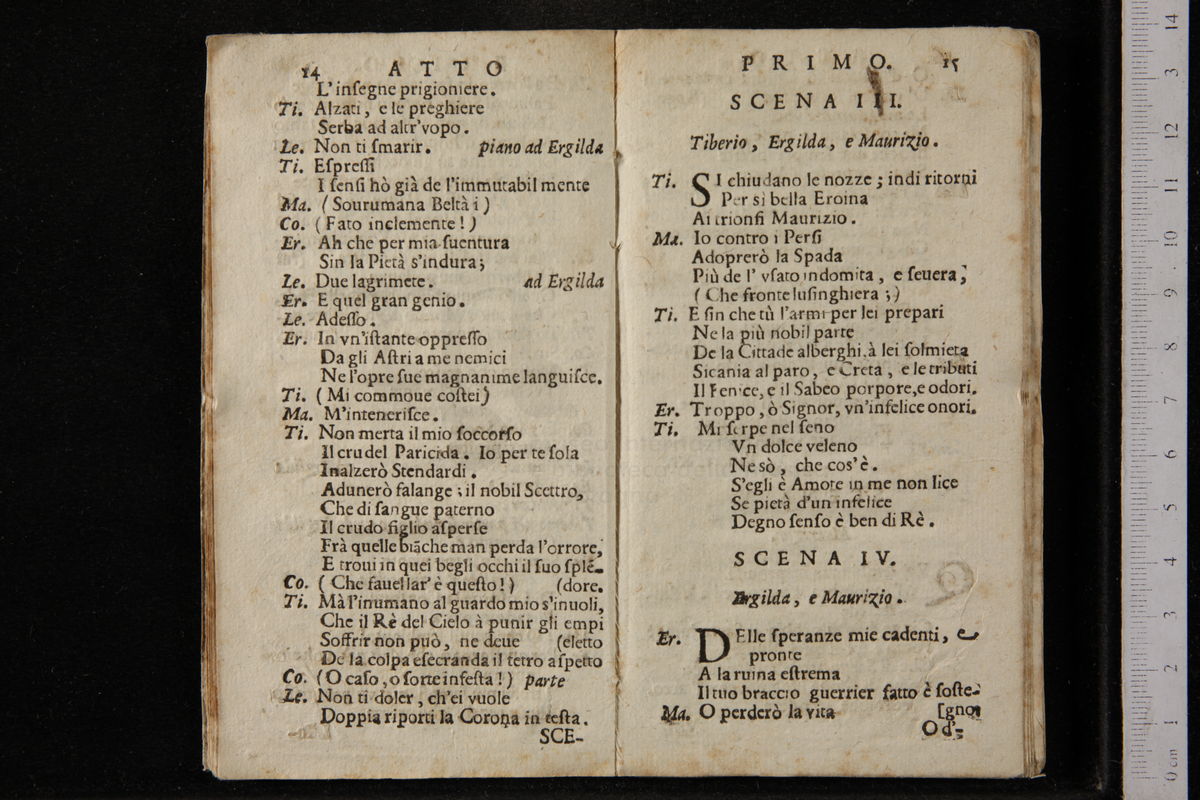 14 ATTO
L'inſegne prigioniere.
Ti. Alzati, e le preghiere
Serba ad altr'vopo.
Le. Non ti ſmarir. piano ad Ergilda
Ti. Eſpreſſi
I ſenſi hò già de l'immutabil mente
Ma. (Sourumana Beltà i)
Co. (Fato inclemente!)
Er. Ah che per mia ſuentura
Sin la Pietà s'indura;
Le. Due lagrimete. ad Ergilda
Er. E quel gran genio.
Le. Adeſſo.
Er. In vn'iſtante oppreſſo
Da gli Aſtri a me nemici
Ne l'opre ſue magnanime languiſce.
Ti. (Mi commoue coſtei)
Ma. M'inteneriſce.
Ti. Non merta il mio ſoccorſo
Il crudel Paricida. Io per te ſola
Inalzerò Stendardi.
Adunerò falange; il nobil Scettro,
Che di ſangue paterno
Il crudo figlio aſperſe
Frà quelle biãche man perda l'orrore,
E troui in quei begli occhi il ſuo ſplẽ-
Co. (Che fauellar' è queſto!) (dore.
Ti. Mà l'inumano al guardo mio s'inuoli,
Che il Rè del Cielo à punir gli empi
Soffrir non può, ne deue (eletto
De la colpa eſecranda il tetro aſpetto
Co. (O caſo, o ſorte infeſta!) parte
Le. Non ti doler, ch'ei vuole
Doppia riporti la Corona in teſta.
SCE-
PRIMO. 15
SCENA III.
Tiberio, Ergilda, e Maurizio.
Ti. SI chiudano le nozze; indi ritorni
Per sì bella Eroina
Ai trionfi Maurizio.
Ma. Io contro i Perſi
Adoprerò la Spada
Più de l' vſato indomita, e ſeuera;
(Che fronte luſinghiera;)
Ti. E ſin che tù l'armi per lei prepari
Ne la più nobil parte
De la Cittade alberghi, à lei ſolmieta
Sicania al paro, e Creta, e le tributi
Il Fenice, e il Sabeo porpore, e odori.
Er. Troppo, ò Signor, vn'infelice onori.
Ti. Mi ſerpe nel ſeno
Vn dolce veleno
Ne sò, che cos'è.
S'egli è Amore in me non lice
Se pietà d'un infelice
Degno ſenſo è ben di Rè.
SCENA IV.
Ergilda, e Maurizio.
Er. DElle ſperanze mie cadenti, e
pronte
A la ruina eſtrema
Il tuo braccio guerrier fatto è ſoſte-
Ma. O perderò la vita [gno:
Od'-